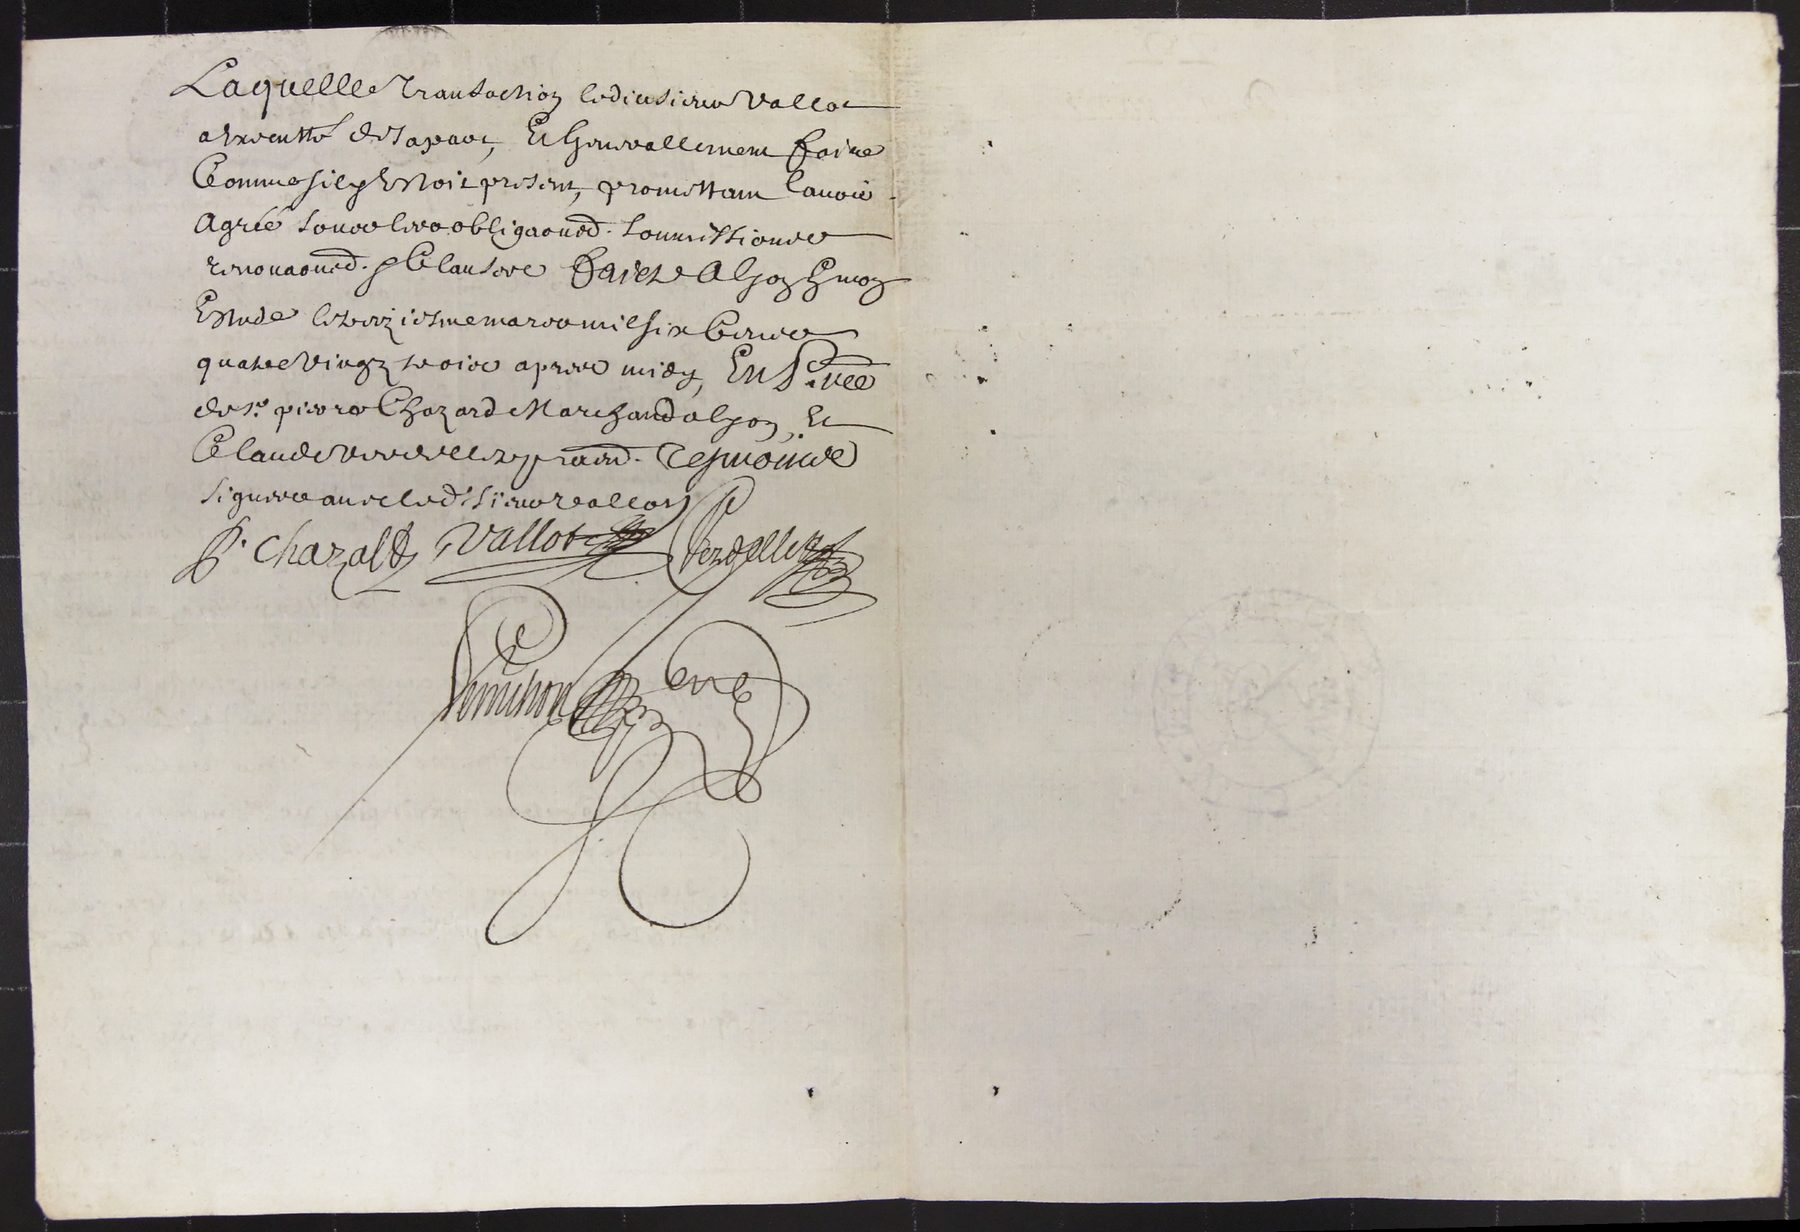 Laquelle transaction ledict sieur Vallot
a executté de sa part, Et generallement faire
Comme sil y Estoit present, promettant lavoir
Agréé soubz les obliga͠ons. soumissions
renonça͠ons. & Clauses faict A Lyon En mon
Estude le treziesme mars mil six Cents
quatre vingtz trois apres midy, En P.nce
de s.r pierre Chazard Marchand a Lyon, Et
Claude Verdellet pratn. Tesmoins
signes avec led. sieur vallot
P. Chazald Vallot C Verdellet